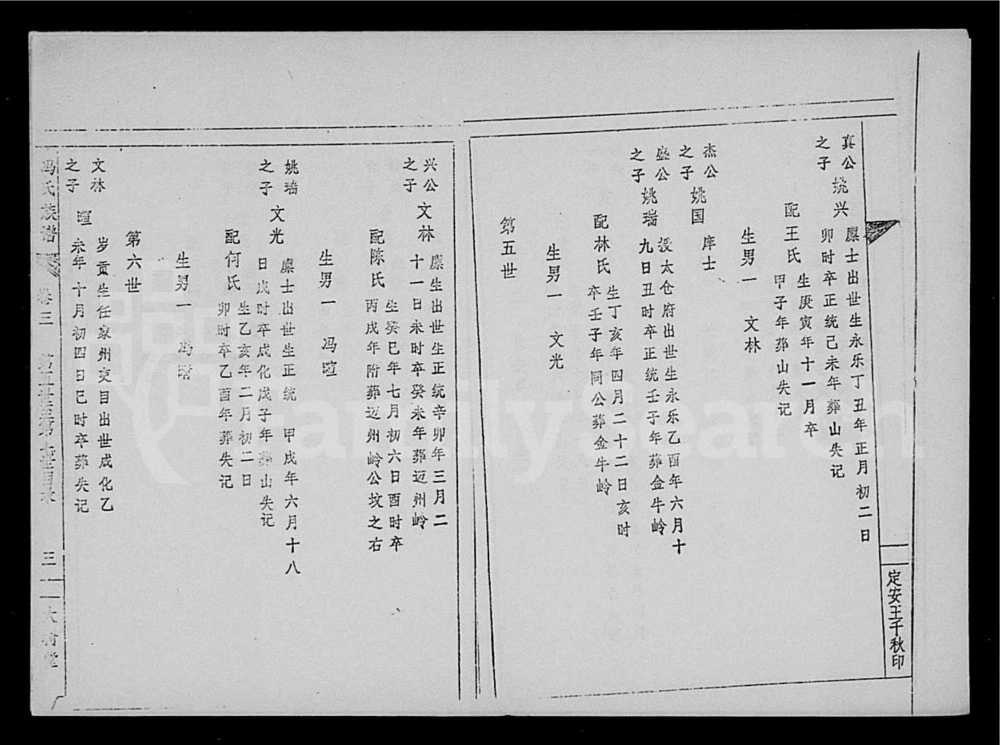 真公
之子
姚兴
廪士出世生永乐丁丑年正月初二日
卯时卒正统己未年葬山失记
配王氏
生庚寅年十一月卒
甲子年葬山失记
生男一 文林
杰公
之子
姚国 庠士
盛公
之子
姚瑞
太仓府出世生永乐乙酉年六月十
九日丑时卒正统壬子年葬金牛岭
配林氏
生丁亥年四月二十二日亥时
卒壬子年同公葬金牛岭
生男一 文光
第五世
兴公
之子
文林
廪生出世生正统辛卯年三月二
十一日未时卒癸未年葬迈州岭
配陈氏
生癸巳年七月初六日酉时卒
丙戌年附葬迈州岭公坟之右
生男一 冯暄
姚瑞
之子
文光
廪士出世生正统 甲戌年六月十八
日戌时卒成化戊子年葬山失记
配何氏
生乙亥年二月初二日
卯时卒乙酉年葬失记
生男一 冯
第六世
文林
之子
暄
岁贡生任象州交目出世成化乙
未年十月初四日巳时卒葬失记
冯氏族谱
卷三
三
定安王千秋印
FamilySearch